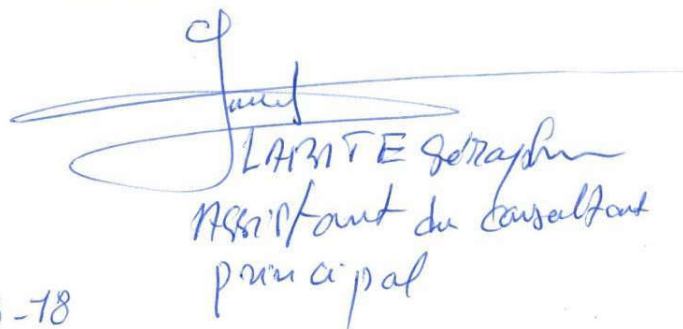 LABITE Séraphin
Assistant du consultant
principal
-18